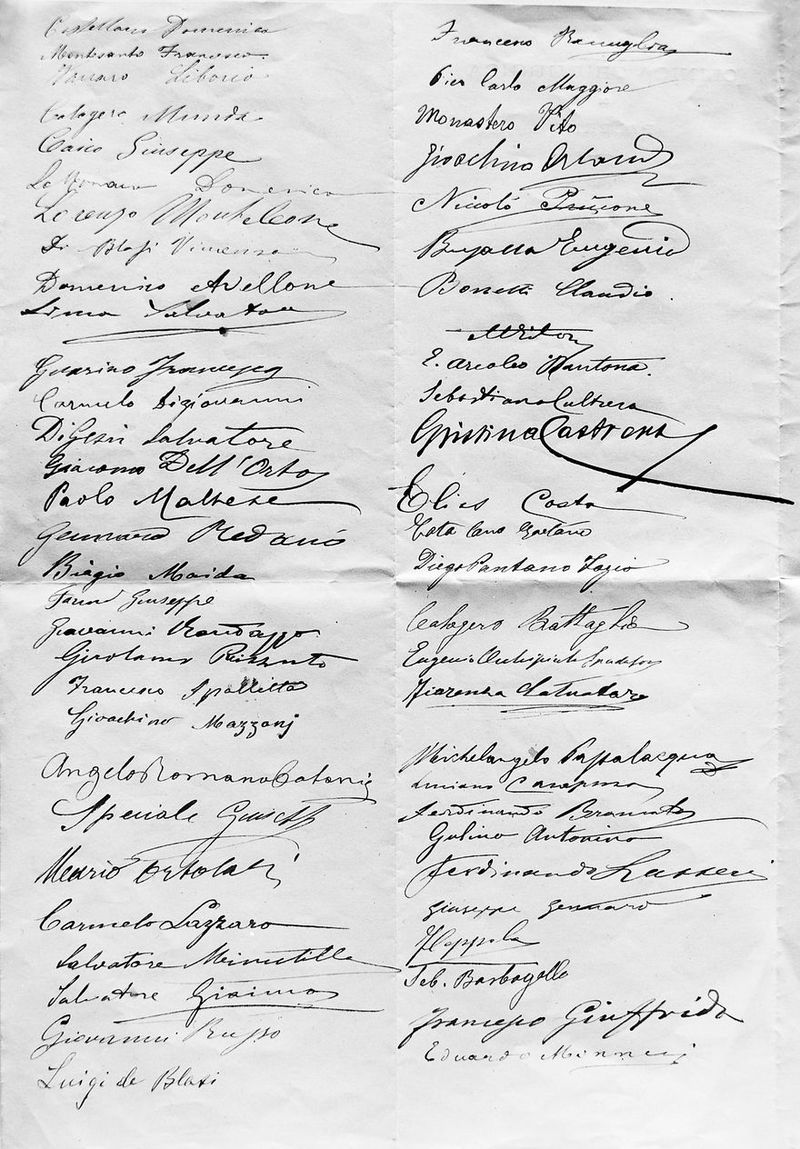 Castellano Domenico
Montesanto Francesco
Vassaro Liborio
Calogero Munda
Caico Giuseppe
Lo Domenico
Lorenzo Monteleone
Di Blasi Vincenzo
Domenico Avellone
Lima Salvatore
Guarino Francesco
Carmelo Digiovanni
Di Salvatore
Giacomo Dell'Orto
Paolo Maltese
Gennaro Redanò
Biagio Maida
Giuseppe
Giovanni Randazzo
Girolamo Rizzuto
Francesco Spallitta
Gioachino Mazzoni
Angelo Romano Catania
Speciale
Mario Ortolani
Carmelo Lazzaro
Salvatore Minutilla
Salvatore Giaimo
Giovanni Russo
Luigi de Blasi
Francesco
Pier Carlo Maggiore
Monastero Vito
Gioachino Orlando
Niccolò
Eugenio
Bonetti Claudio
E. Arcoleo
Sebastiano Cultrera
Cristina Castrena
Elies Costa
Gaetano
Diego Pantano Fazio
Calogero Battaglia
Eugenio
Fiorenza Salvatore
Michelangelo Passalacqua
Luciano
Ferdinando Brancato
Gulino Antonino
Ferdinando
Giuseppe Gennaro
Seb. Barbagallo
Francesco Giuffrida
Eduardo